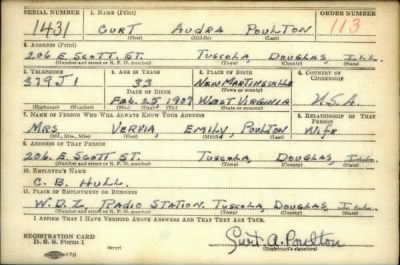 SERIAL NUMBER 1. NAME (Print) ORDER NUMBER
1431 CURT AUDRA POULTON 113
(First) (Middle) (Last)
2. ADDRESS (Print)
206 E. SCOTT ST. TUSCOLA, DOUGLAS, ILL.
(Number and street or R. F. D. number) (Town) (County) (State)
3. TELEPHONE 4. AGE IN YEARS 5. PLACE OF BIRTH 6. COUNTRY OF CITIZENSHIP
33 NEW MARTINSVILLE
379J1 DATE OF BIRTH (Town or county)
FEB. 25 1907 WEST VIRGINIA U.S.A.
(Exchange) (Number) (Mo.) (Day) (Yr.) (State or country)
7. NAME OF PERSON WHO WILL ALWAYS KNOW YOUR ADDRESS 8. RELATIONSHIP OF THAT PERSON
MRS VERVIA, EMILY, POULTON WIFE
(Mr., Mrs., Miss) (First) (Middle) (Last)
9. ADDRESS OF THAT PERSON
206. E. SCOTT ST. TUSCOLA, DOUGLAS, ILL.
(Number and street or R. F. D. number) (Town) (County) (State)
10. EMPLOYER'S NAME
C. B. HULL.
11. PLACE OF EMPLOYMENT OR BUSINESS
W.D.Z. RADIO STATION, TUSCOLA, DOUGLAS, ILL.
(Number and street or R. F. D. number) (Town) (County) (State)
I AFFIRM THAT I HAVE VERIFIED ABOVE ANSWERS AND THAT THEY ARE TRUE.
REGISTRATION CARD
D. S. S. Form 1 Curt A. Poulton
(Registrant's signature)